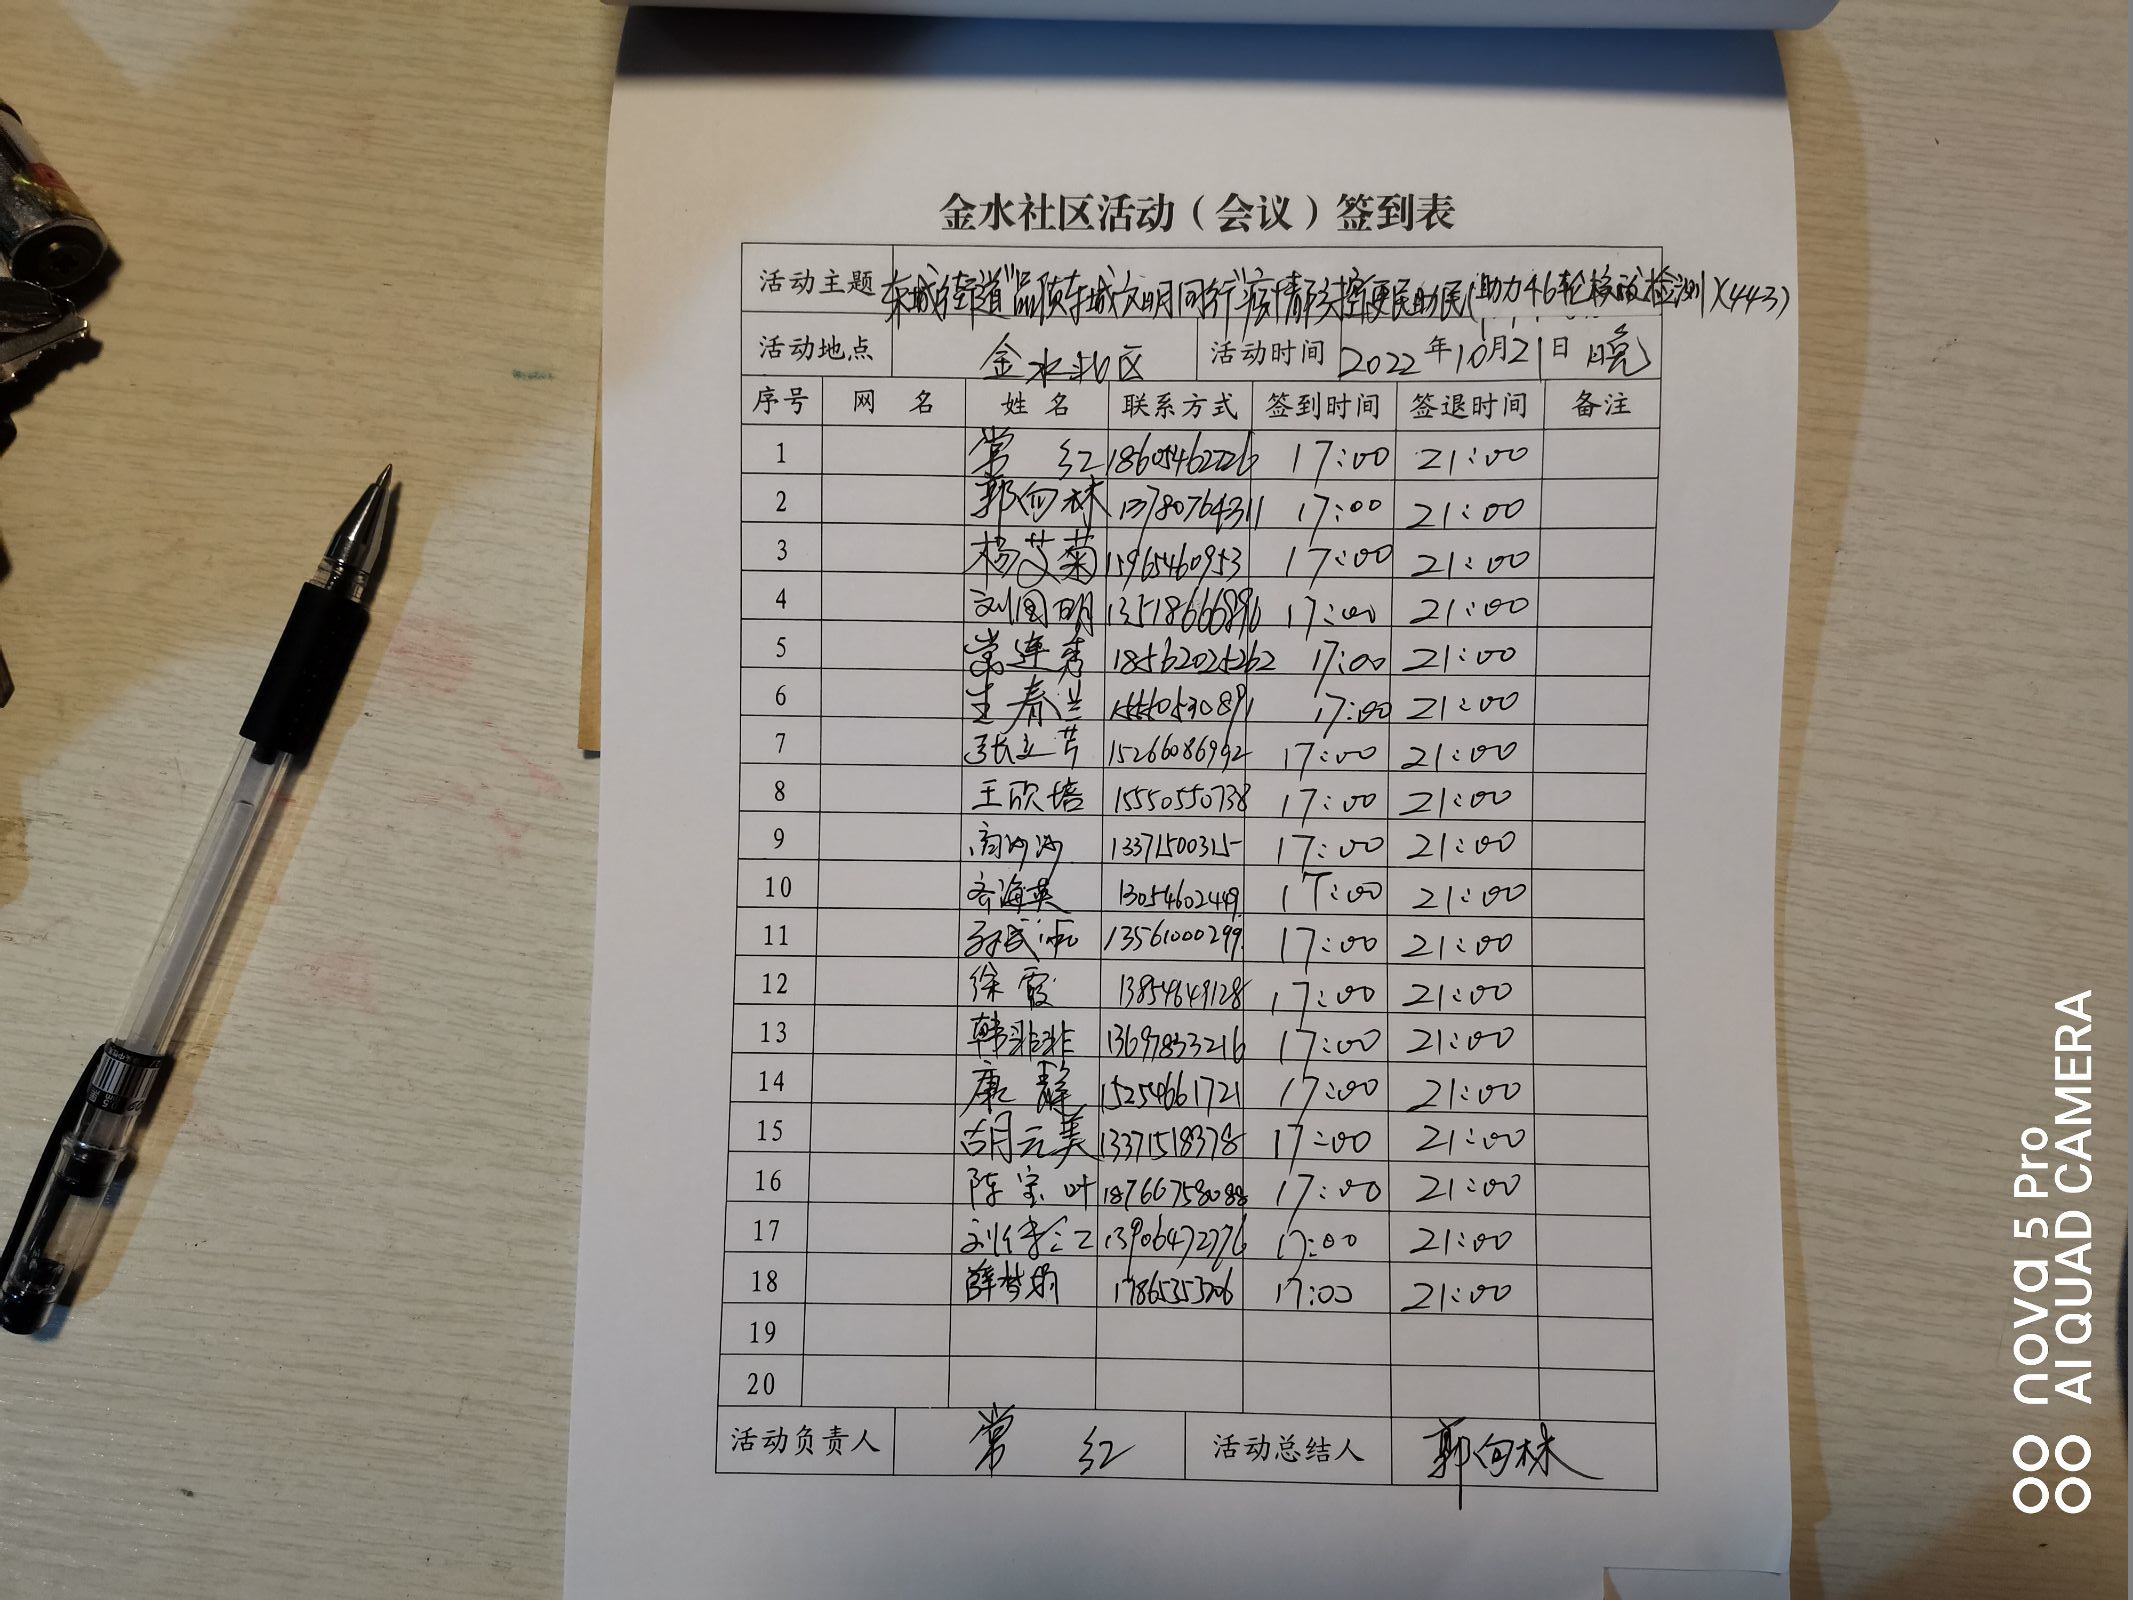 金水社区活动（会议）签到表
活动主题 东城街道"品质东城文明同行"疫情防控便民助民(助力46轮核酸检测)(443)
活动地点 金水北区 活动时间 2022年10月21日 晚
序号 网 名 姓 名 联系方式 签到时间 签退时间 备注
1 常 红 17:00 21:00
2 郭向林 13780764311 17:00 21:00
3 杨艾菊 15965460953 17:00 21:00
4 刘国明 13518666896 17:00 21:00
5 常连秀 18562025262 17:00 21:00
6 生春兰 17:00 21:00
7 张立芹 15266086992 17:00 21:00
8 王欣培 15550550738 17:00 21:00
9 高沙沙 13371500315 17:00 21:00
10 齐海英 13054602449 17:00 21:00
11 13561000299 17:00 21:00
12 徐霞 13854649128 17:00 21:00
13 韩非非 13697833216 17:00 21:00
14 康 静 15254661721 17:00 21:00
15 胡元美 13371518378 17:00 21:00
16 陈宝叶 18766758088 17:00 21:00
17 13906472776 17:00 21:00
18 17865353206 17:00 21:00
19
20
活动负责人 常 红 活动总结人 郭向林
nova 5 Pro
AI QUAD CAMERA